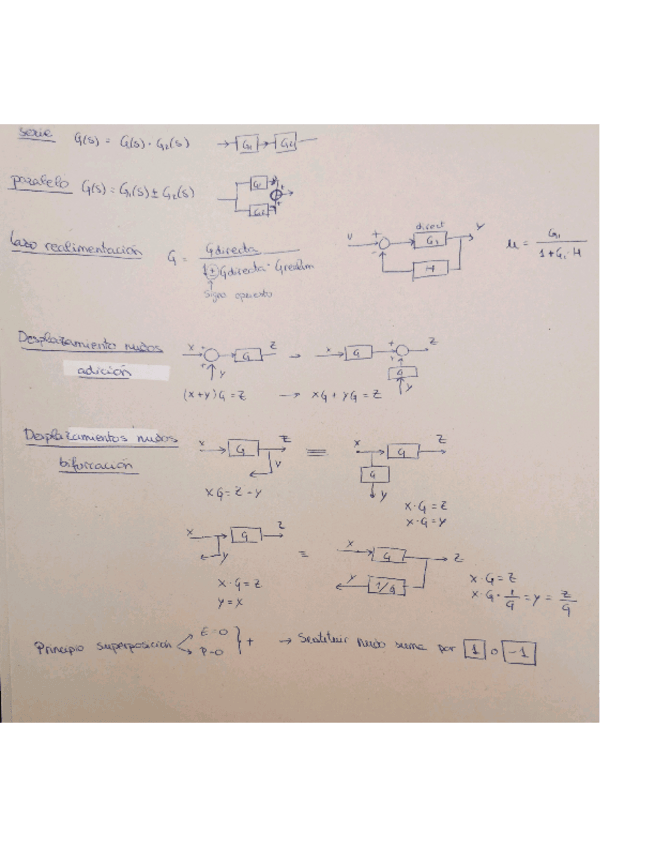 Serie G(s) = G(s) · G₂(s) G₁ G₂
paralelo G(s) = G₁(s) ± G₂(s) G₁
G₂
Lazo realimentación G = Gdirecta / 1 ± Gdirecta · Grealim
Signo opuesto
U + - direct G₁ H Y
M = G₁ / 1 + G₁ · H
Desplazamiento nudos
adición
x + + y G Z → x G + + Z G y
(x+y)G = Z → xG + yG = Z
Desplazamientos nudos
bifurcación
x G Z y = x G Z G y
xG = Z = y
x · G = Z
x · G = y
x G Z y = x G Z y 1/G
x · G = Z
y = x
x · G = Z
x · G · 1/G = y = Z/G
Principio superposición E=0 P=0 } + → Sustituir nudo suma por 1 o -1